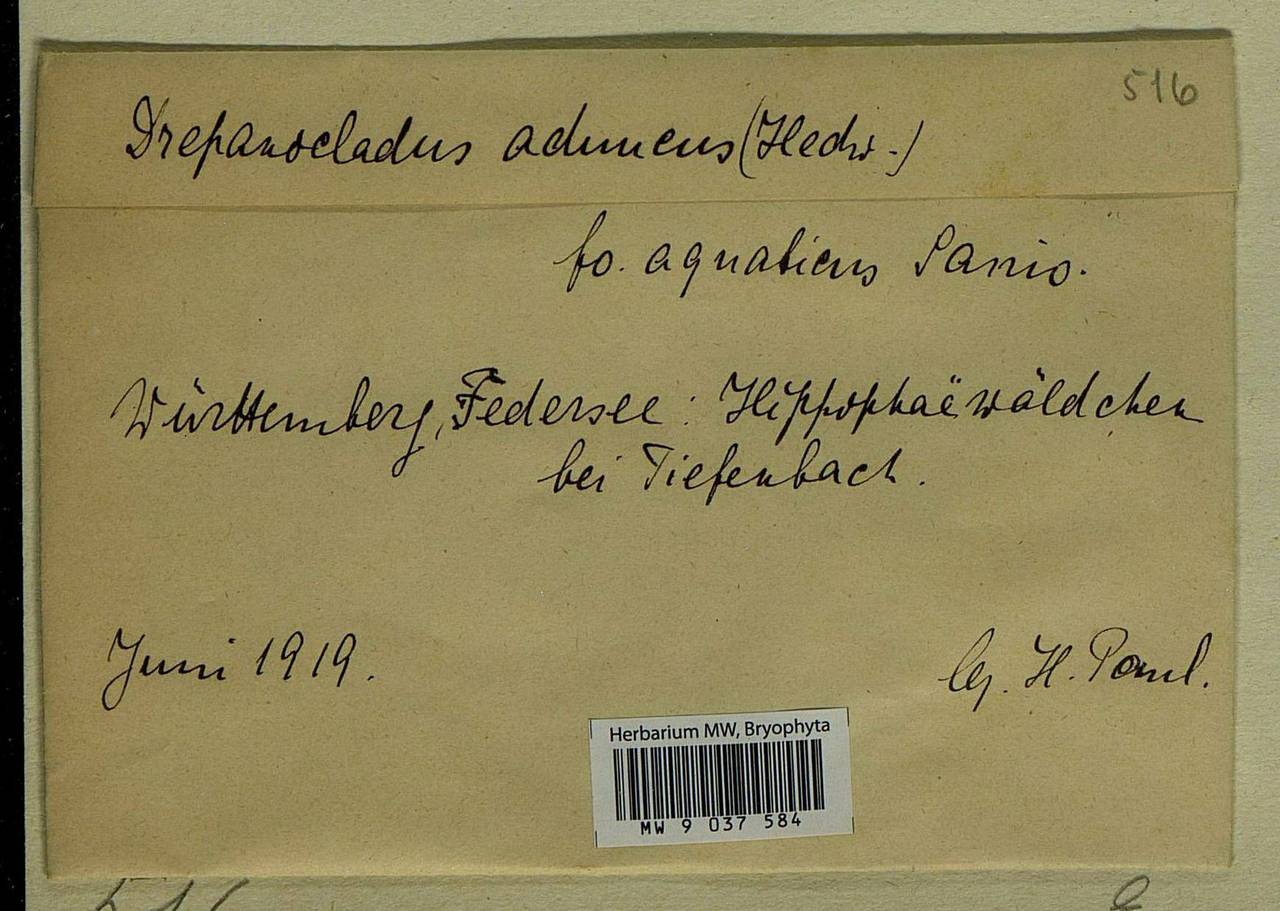 516
Drepanocladus aduncus (Hedw.)
fo. aquaticus Sanio.
Württemberg, Federsee: Hippophaëwäldchen
bei Tiefenbach.
Juni 1919.
lg. H. Paul.
Herbarium MW, Bryophyta
MW 9 037 584